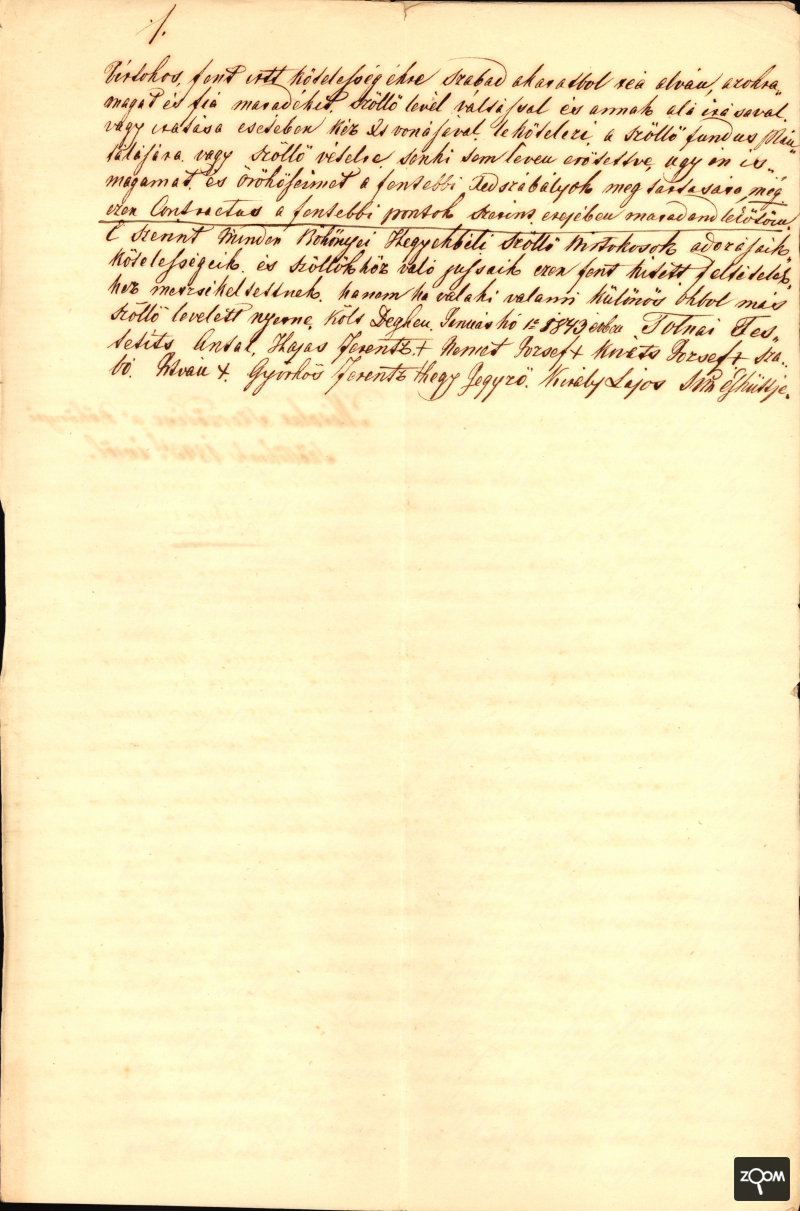 ./.
Birtokos, fent irtt kötelességekre szabad akaratbol reá alván, azokra
magat és fia maradékit, szöllö levél váltással és annak alá irásaval.
vagy iratása esetében kéz Is vonásával. lekötelezi a szöllö fundus plán„
tálására vagy szöllö vételre senki sem leven erösettve, ugy én is„
magamat, és örököseimet a fentebbi Tedszábályok meg tartására, még
ezen Contractus a fentebbi pontok szerint erejében maradand
E szerint Minden Bökönyei Hegyekbéli szöllö Birtokosok adozásaik„
kötelességeik. és szöllökhöz való jussaik ezen fent kitett feltételek„
hez mérsékeltettnek. hanem ha valaki valami különös okbol más
szöllö levelett nyerne, költ Deghen, Január hó 1ső 1843 évbe Tolnai Fes„
tetits Antal, Hajas Ferentz + Nemet Jozsef + Kováts Jozsef + Sza„
bó. István +. Gyorkös Ferentz Hegy Jegyzö. Király Lajos Esküttje.
ZOOM